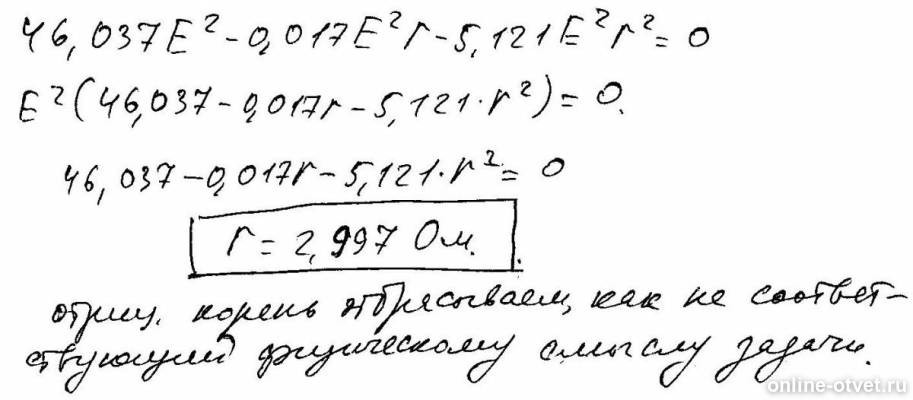 46,037E² - 0,017E²r - 5,121E²r² = 0
E²(46,037 - 0,017r - 5,121·r²) = 0.
46,037 - 0,017r - 5,121·r² = 0
r = 2,997 Ом.
отриц. корень отбрасываем, как не соответ-
ствующий физическому смыслу задачи.
online-otvet.ru